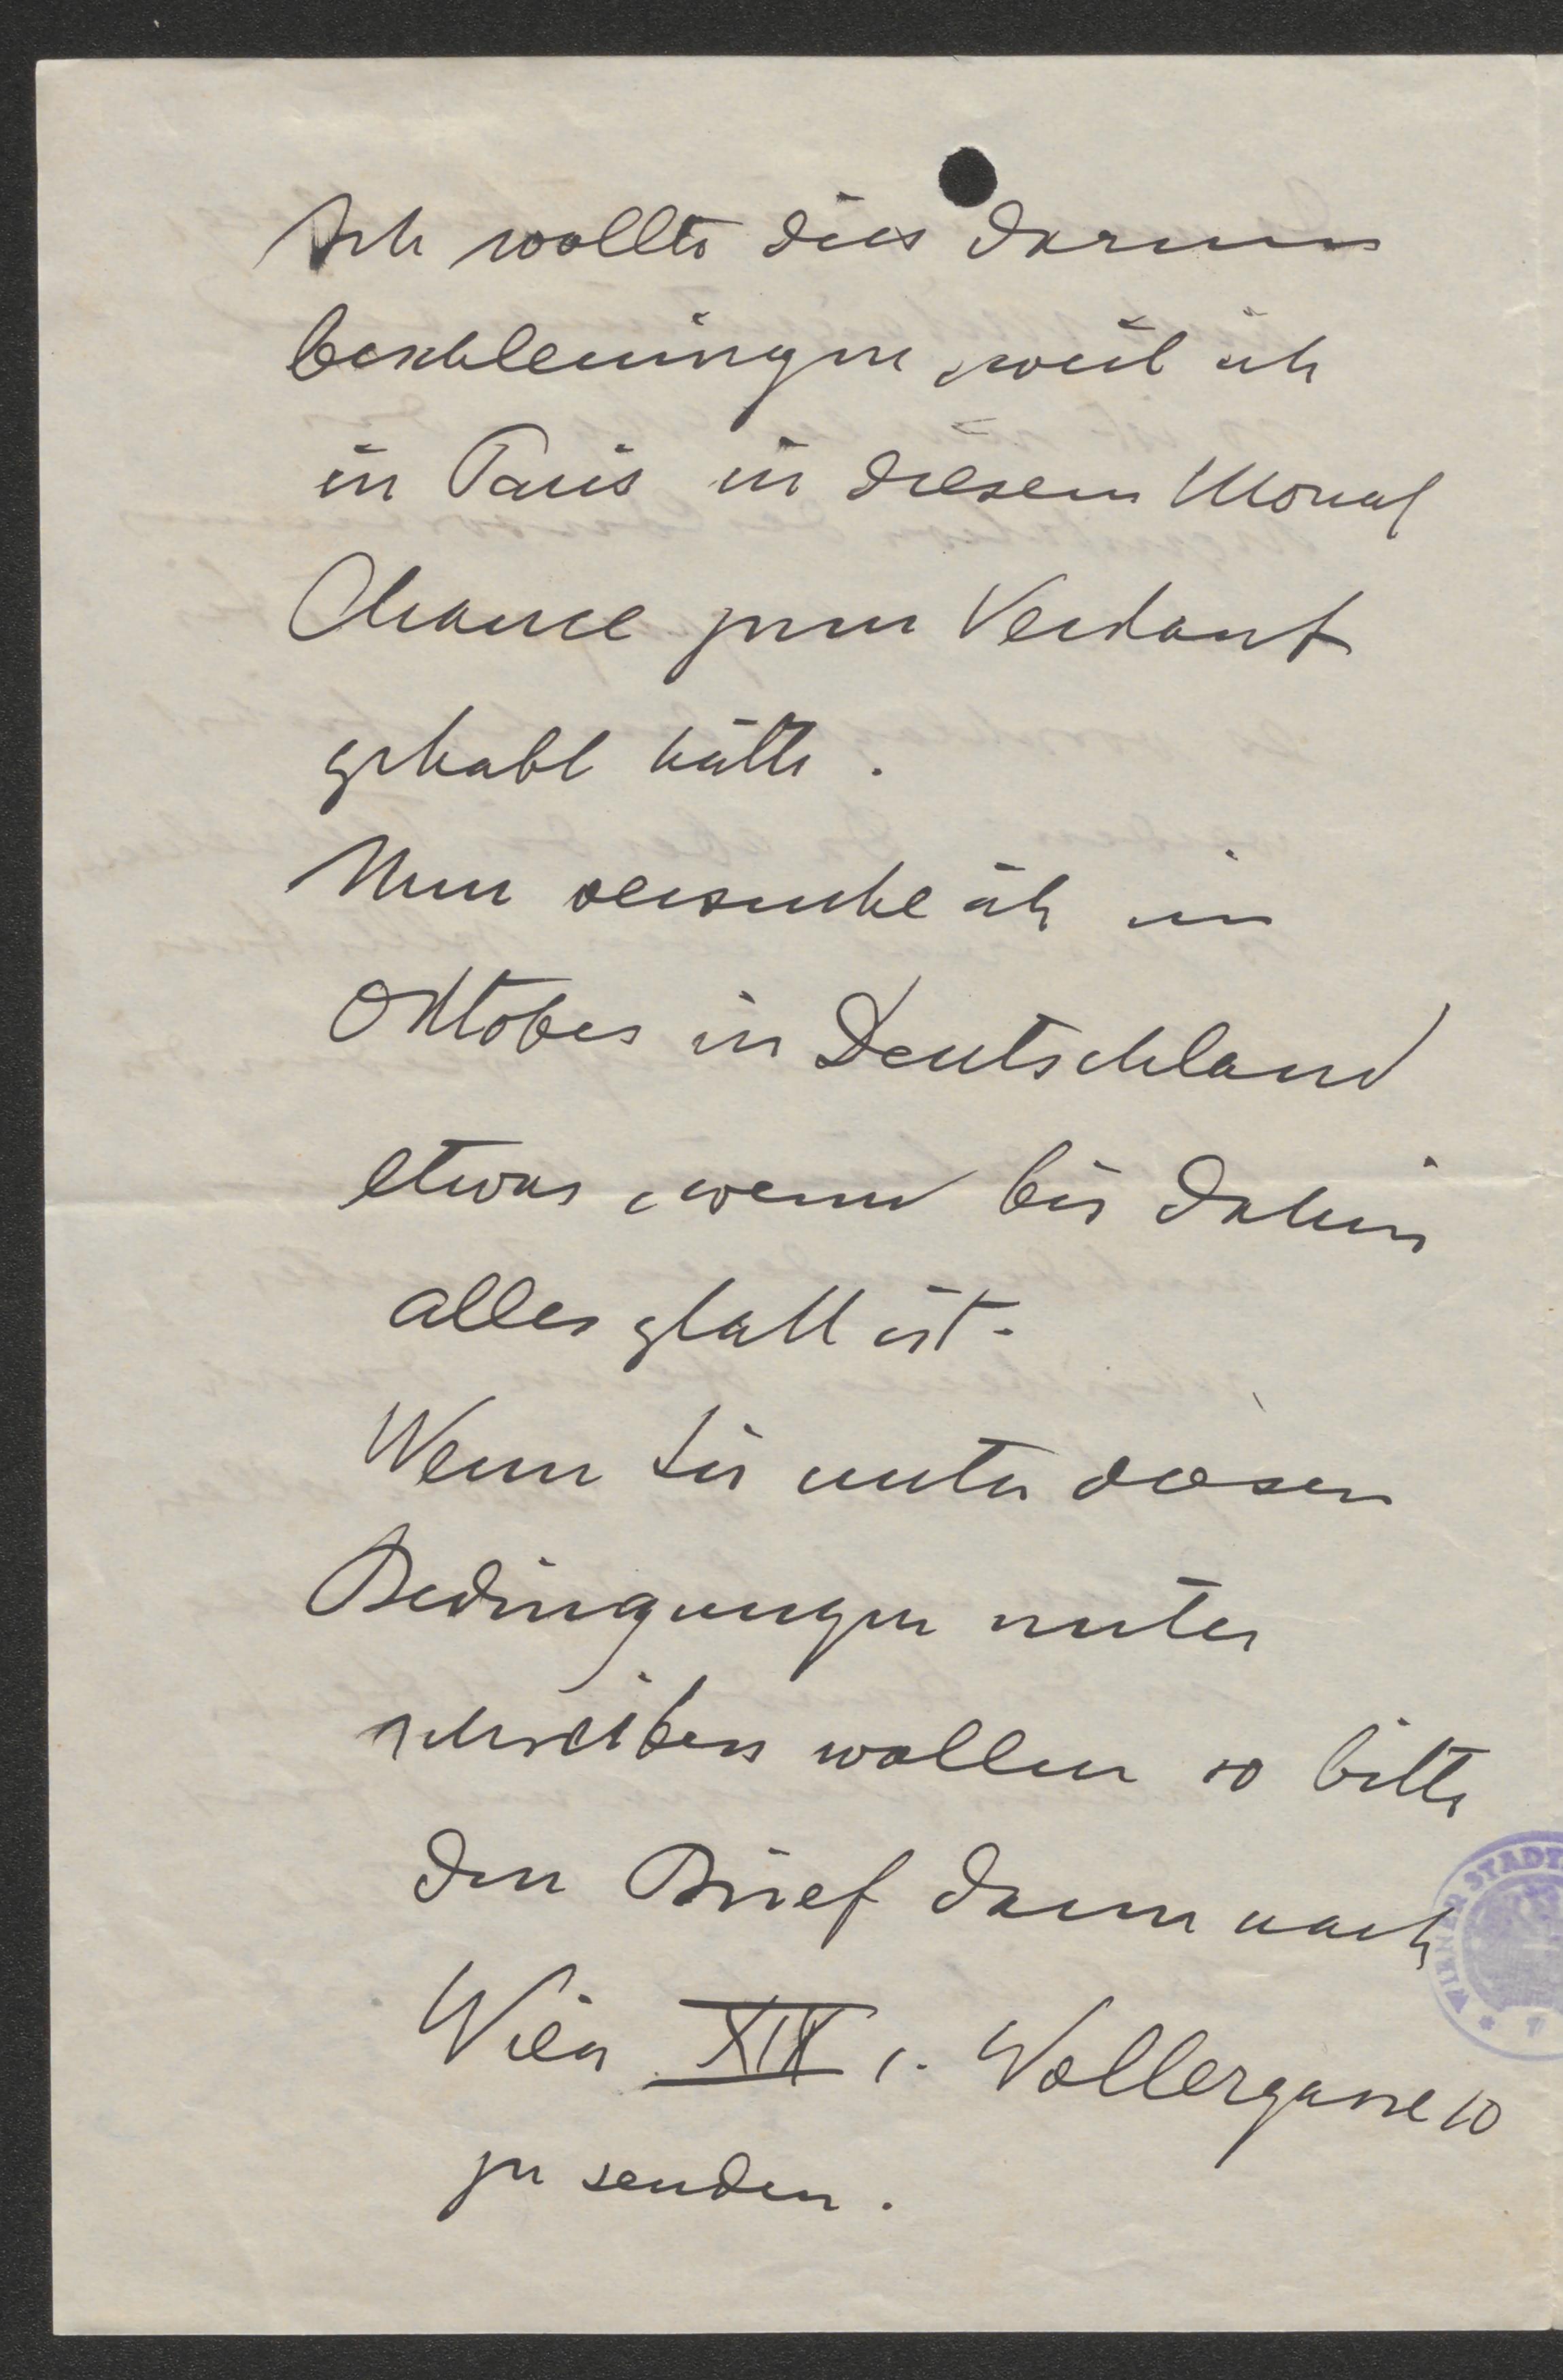 Ich wollte dies darum
beschleunigen, weil ich
in Paris in diesem Monat
Chance zum Verkauf
gehabt hätte.
Nun versuche ich im
Oktober in Deutschland
etwas, wenn bis dahin
alles glatt ist.
Wenn Sie unter diesen
Bedingungen unter
schreiben wollen so bitte
den Brief dann nach
Wien XIX, Wollergasse 10
zu senden.
WIENER STADT